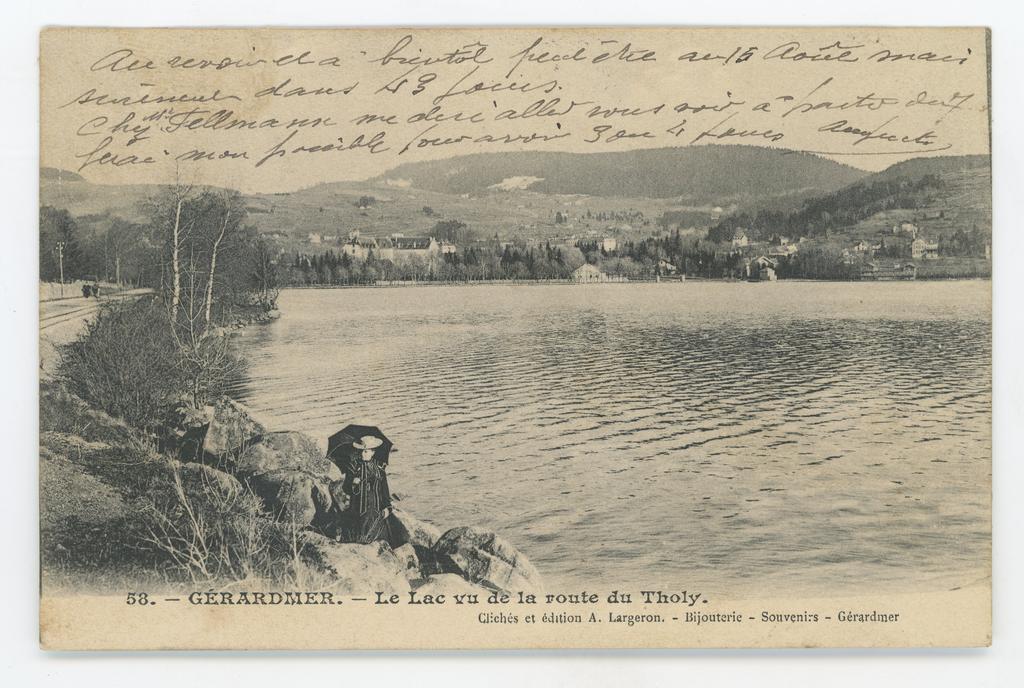 Au revoir et à bientôt peut être au 15 Août mais
sûrement dans 43 jours.
Chez Mr Fellmann me desire aller vous voir à partir du 7
ferai mon possible pour avoir 3 ou 4 jours Auguste
58. — GÉRARDMER. — Le Lac vu de la route du Tholy.
Clichés et édition A. Largeron. - Bijouterie - Souvenirs - Gérardmer